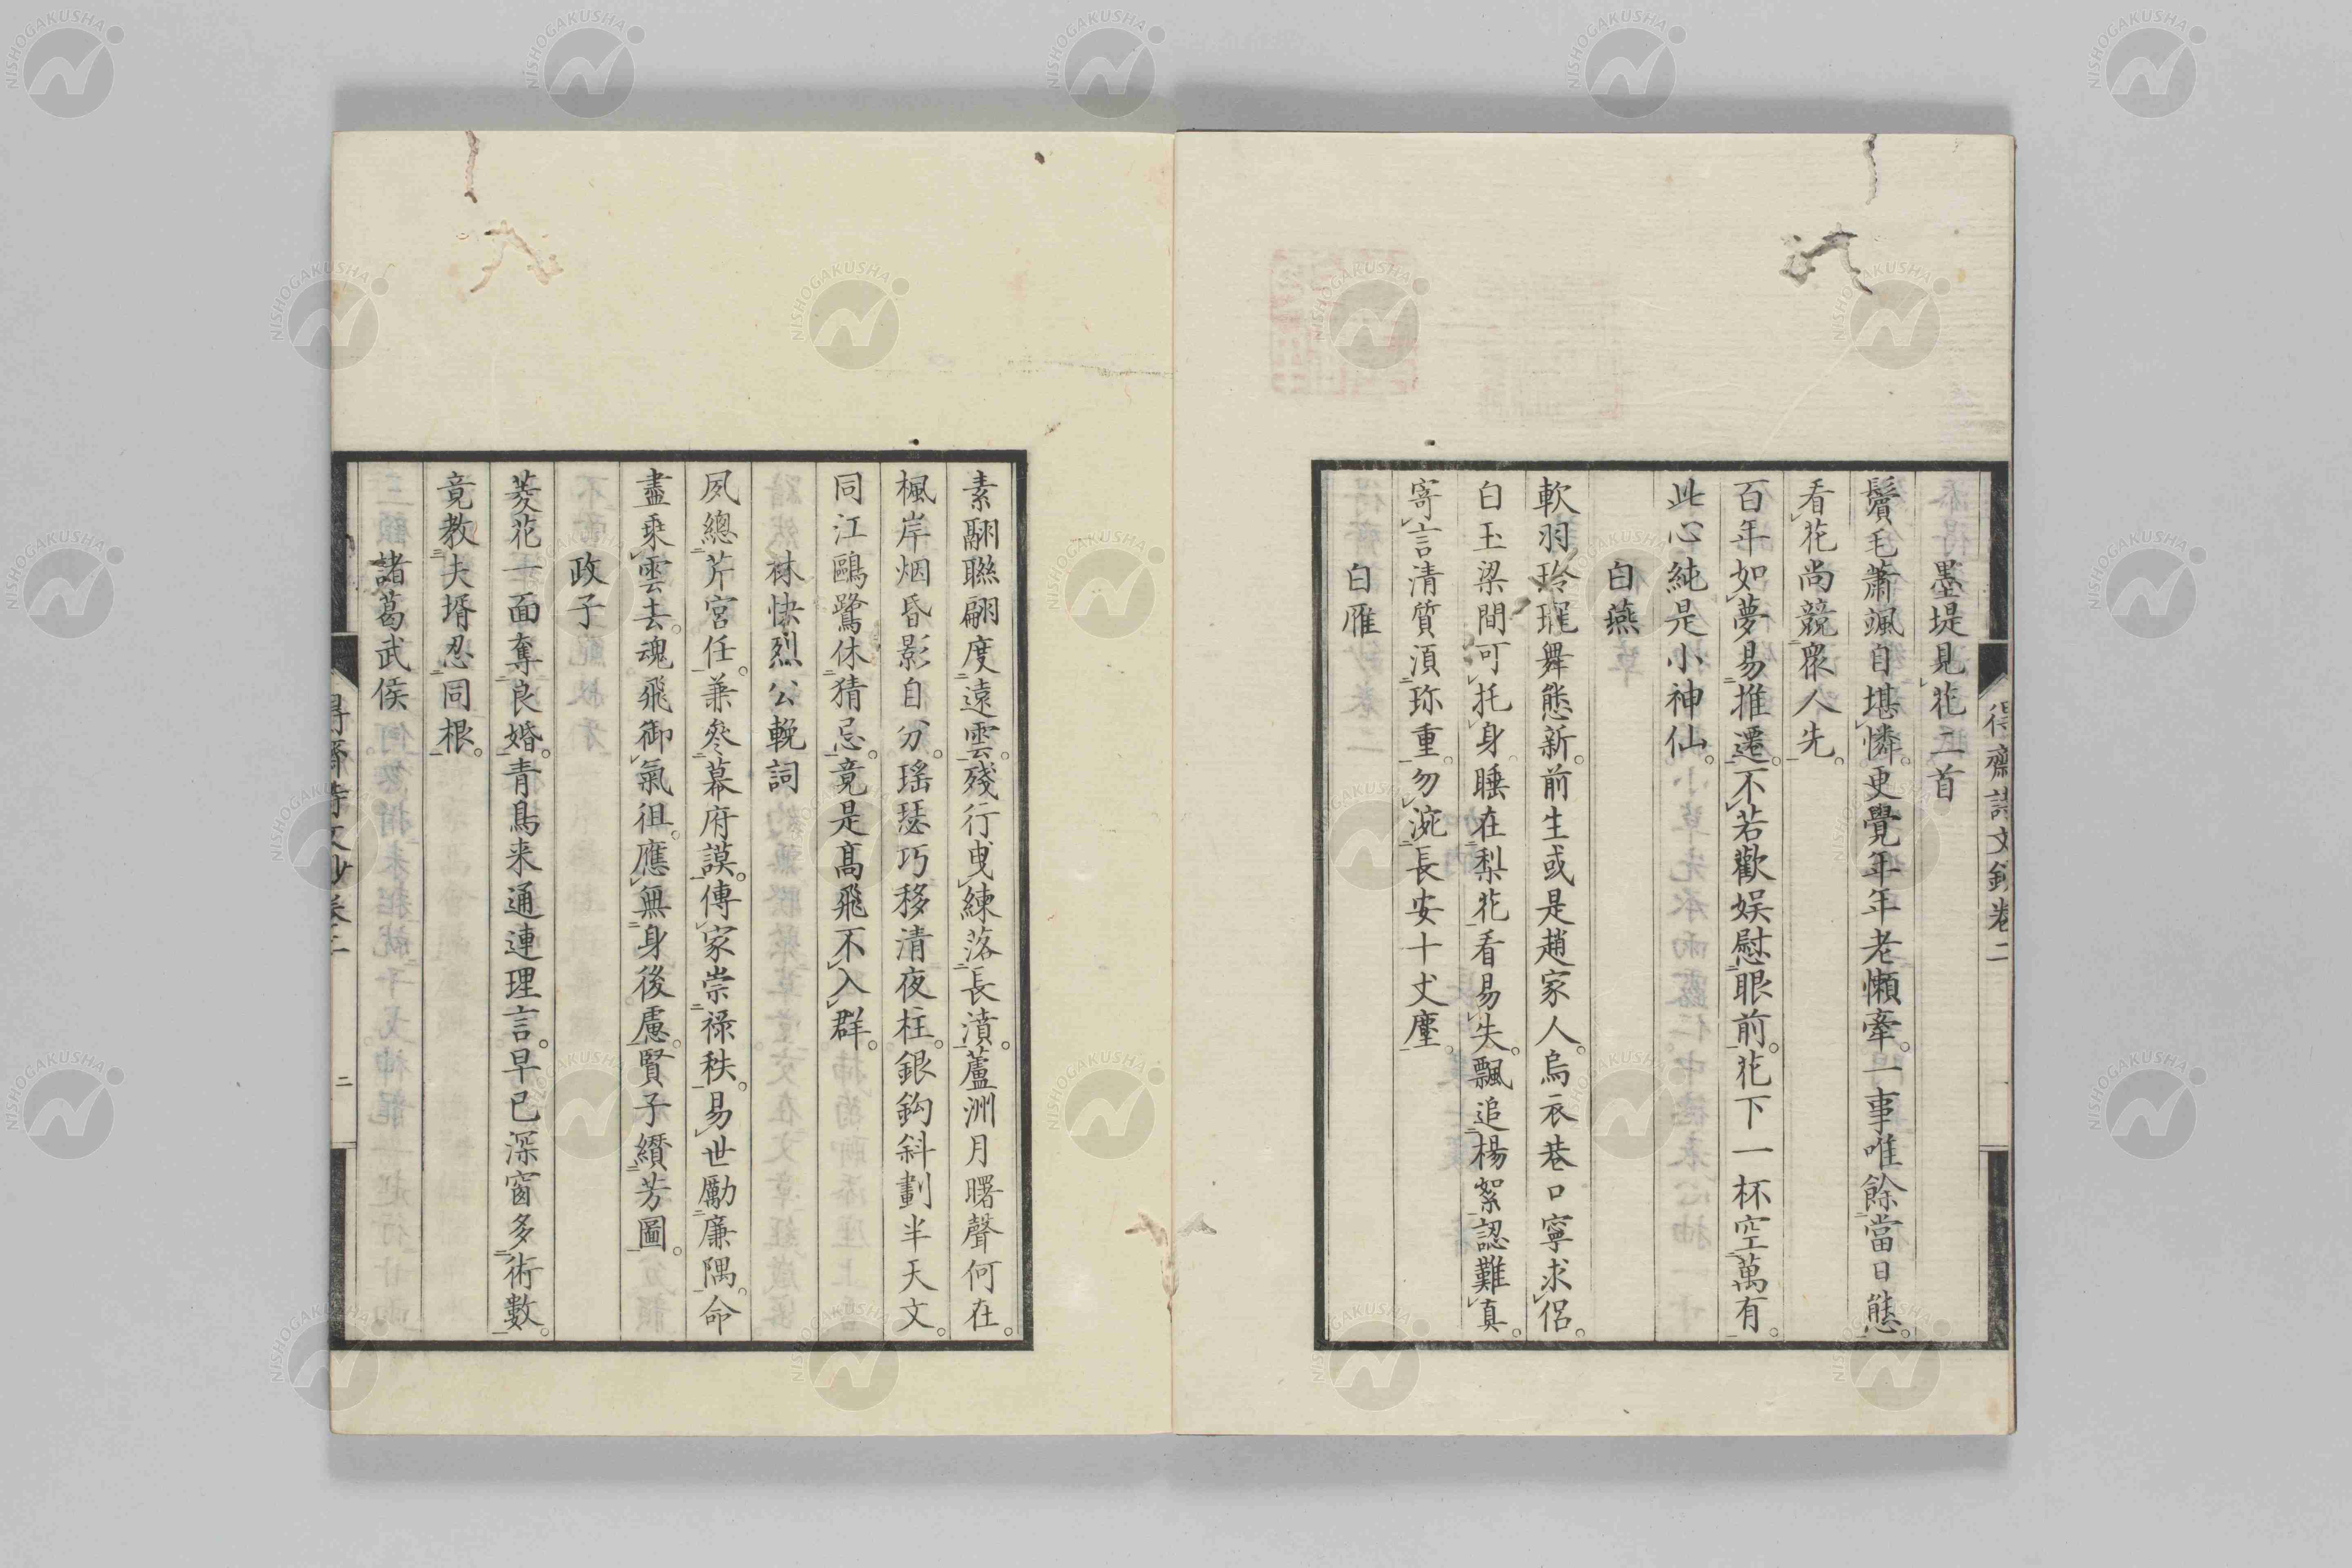 得齋詩文鈔卷二
墨堤見花二首
鬢毛蕭颯自堪憐。更覺年年老懶牽。一事唯餘當日態。
看花尚競衆人先。
百年如夢易推遷。不若歡娯慰眼前。花下一杯空萬有。
此心純是小神仙。
白燕
軟羽玲瓏舞態新。前生或是趙家人。烏衣巷口寧求侶。
白玉梁間可托身。睡在梨花看易失。飄追楊絮認難真。
寄言清質須珎重。勿涴長安十丈塵。
白雁
素翮聯翩度遠雲。殘行曵練落長濆。蘆洲月曙聲何在。
楓岸烟昏影自分。瑤瑟巧移清夜柱。銀鈎斜劃半天文。
同江鷗鷺休猜忌。竟是髙飛不入群。
林快烈公輓詞
夙總芹宮任。兼叅幕府謨。傳家崇祿秩。易世勵廉隅。命
盡乗雲去。魂飛御氣徂。應無身後慮。賢子纘芳圖。
政子
菱花一面奪良婚。青鳥来通連理言。早已深窗多術數。
竟教夫壻忍同根。
諸葛武侯
得齋詩文鈔卷二
二
NISHOGAKUSHA